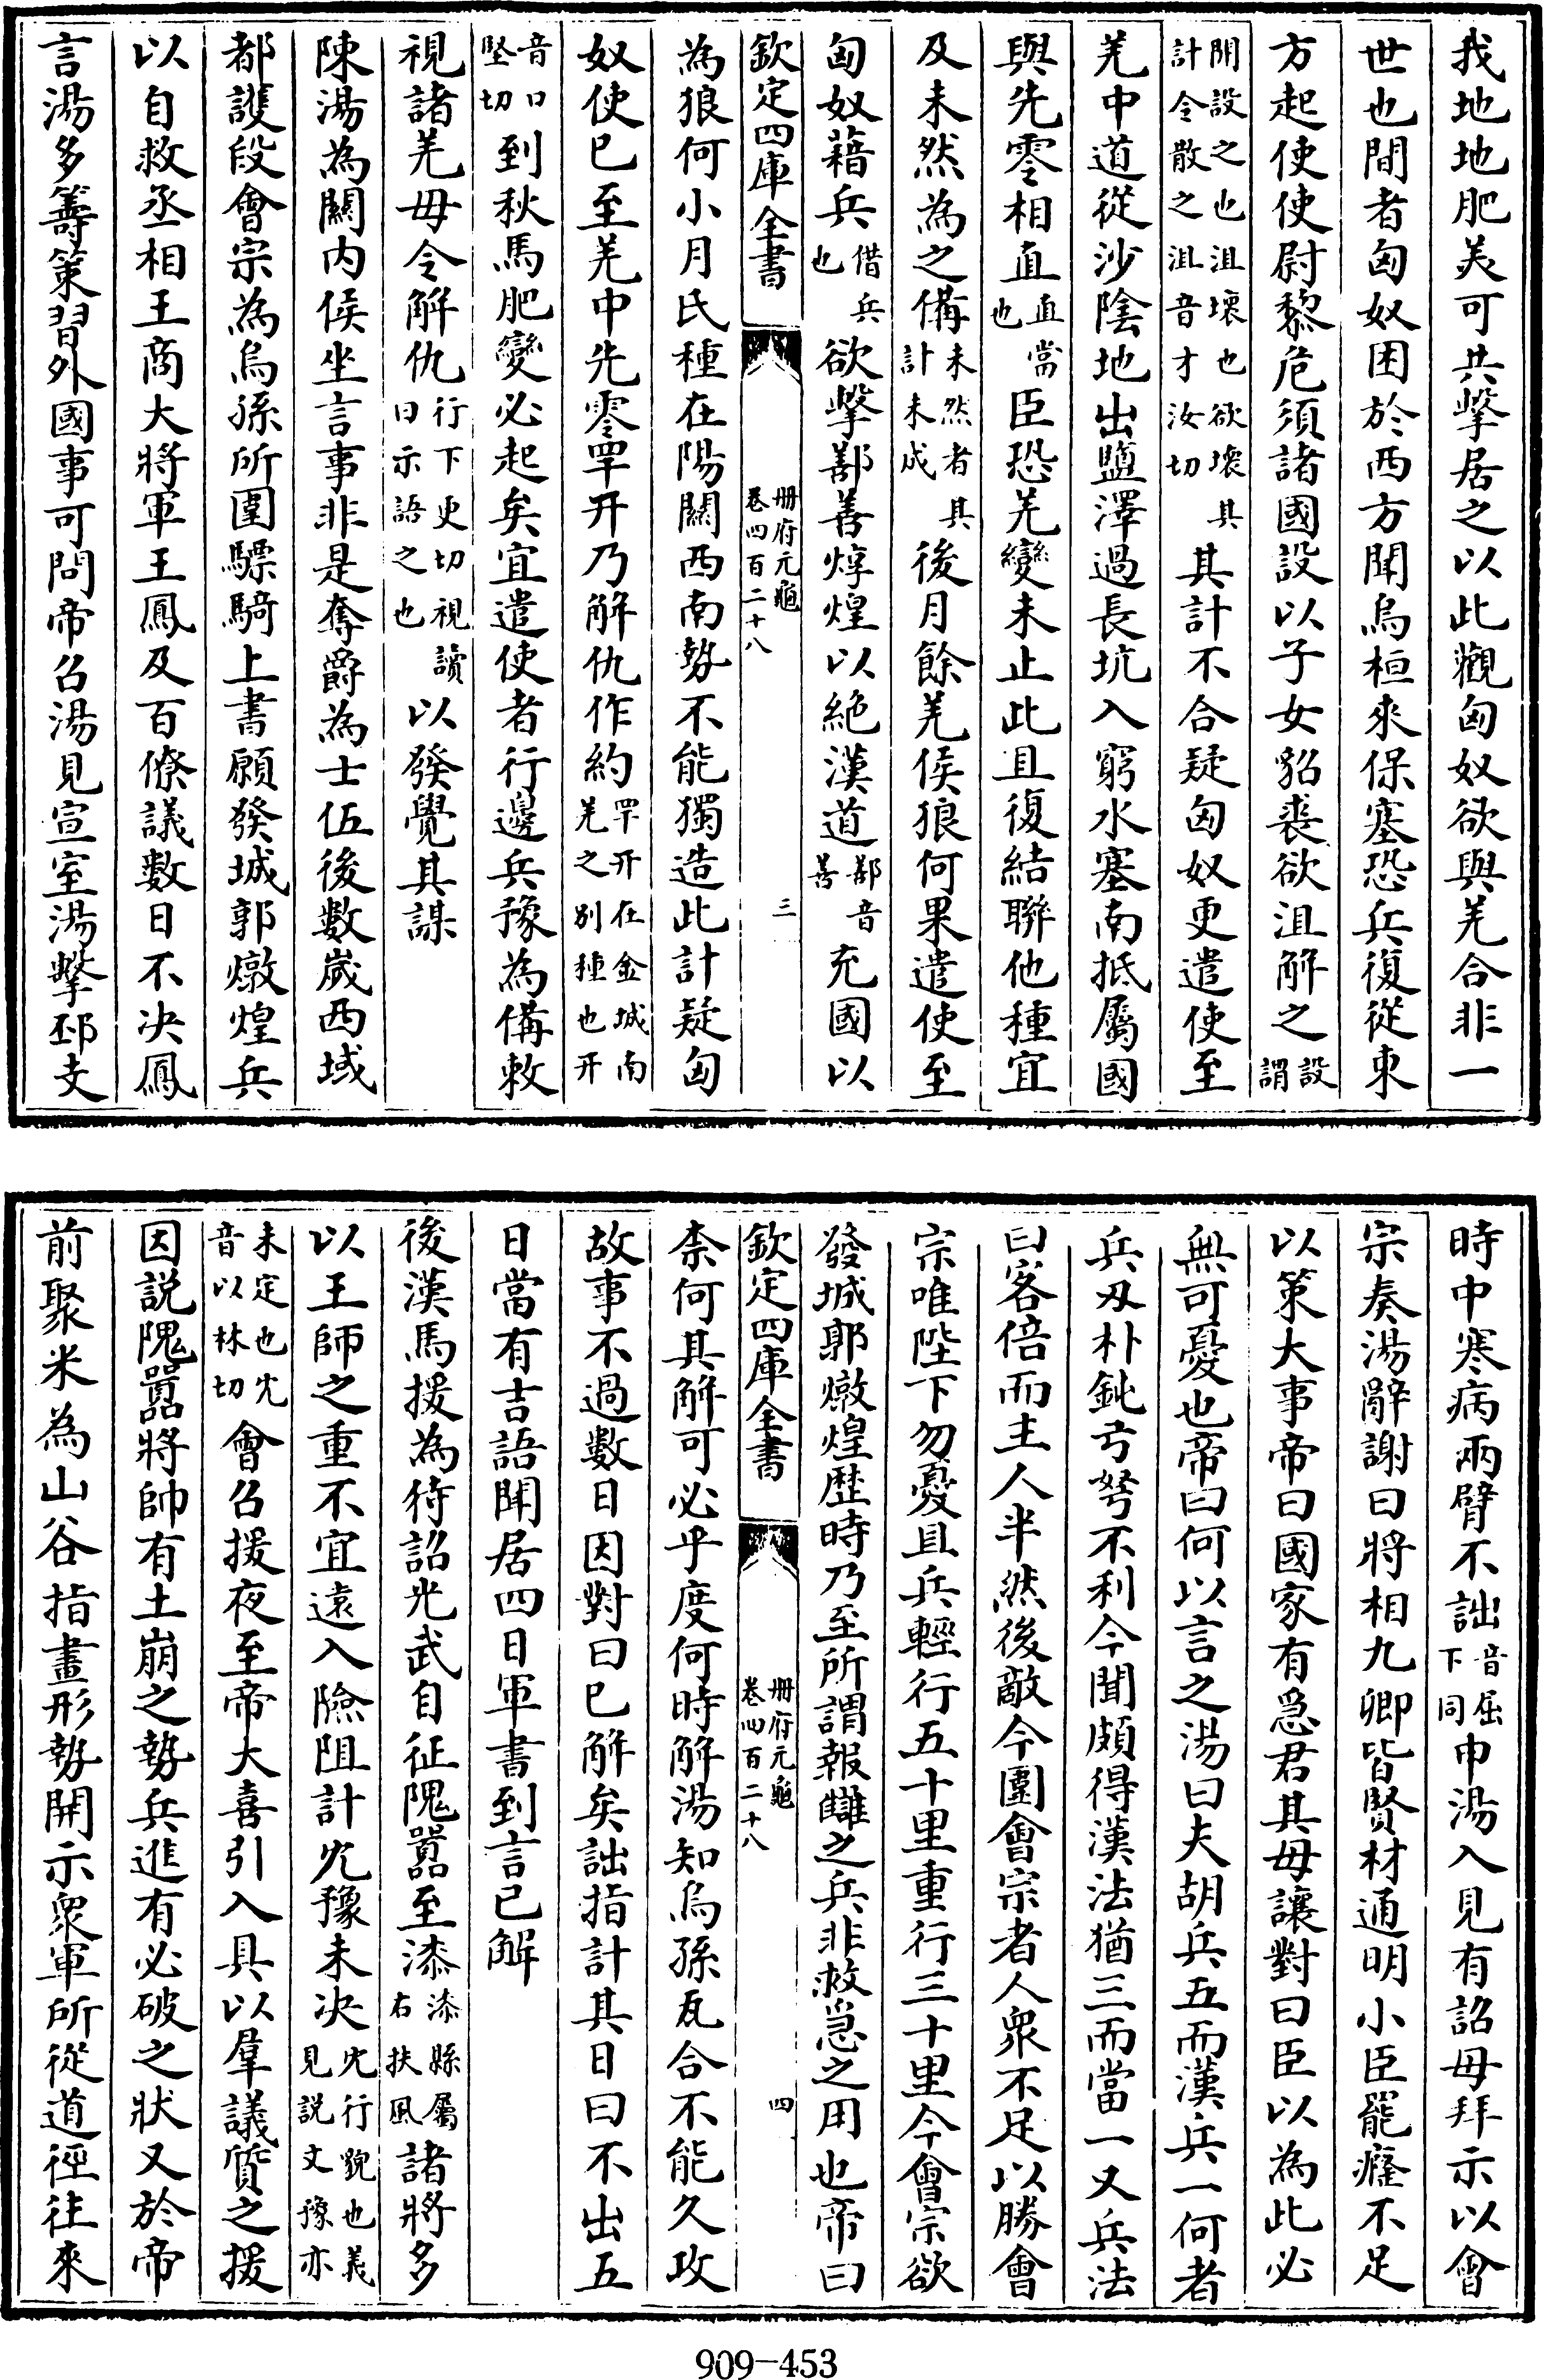 我地地肥美可共擊居之以此觀匈奴欲與羌合非一
世也間者匈奴困於西方聞烏桓來保塞恐兵復從東
方起使使尉黎危須諸國設以子女貂裘欲沮解之設謂
開設之也沮壞也欲壞其計令散之沮音才汝切其計不合疑匈奴更遣使至
羌中道從沙陰地出鹽澤過長坑入窮水塞南抵屬國
與先零相直直當也臣恐羌變未止此且復結聯他種宜
及未然為之備未然者其計未成後月餘羌侯狼何果遣使至
匈奴藉兵借兵也欲擊鄯善焞煌以絕漢道鄯音善充國以
欽定四庫全書 冊府元龜卷四百二十八 三
為狼何小月氏種在陽關西南勢不能獨造此計疑匈
奴使已至羌中先零䍐幵乃解仇作約䍐幵在金城南羌之别種也幵
音口堅切到秋馬肥變必起矣宜遣使者行邊兵豫為備敕
視諸羌毋令解仇行下更切視讀曰示語之也以發覺其謀
陳湯為關内侯坐言事非是奪爵為士伍後數嵗西域
都護段會宗為烏孫所圍驃騎上書願發城郭燉煌兵
以自救丞相王商大將軍王鳳及百僚議數日不决鳳
言湯多籌策習外國事可問帝召湯見宣室湯擊郅支
時中寒病兩臂不詘音屈下同申湯入見有詔毋拜示以會
宗奏湯辭謝曰將相九卿皆賢材通明小臣罷癃不足
以策大事帝曰國家有急君其毋讓對曰臣以為此必
無可憂也帝曰何以言之湯曰夫胡兵五而漢兵一何者
兵刄朴鈍弓弩不利今聞頗得漢法猶三而當一又兵法
曰客倍而主人半然後敵今圍會宗者人衆不足以勝會
宗唯陛下勿憂且兵輕行五十里重行三十里今會宗欲
發城郭燉煌歴時乃至所謂報讎之兵非救急之用也帝曰
欽定四庫全書 冊府元龜卷四百二十八 四
柰何其解可必乎度何時解湯知烏孫瓦合不能久攻
故事不過數日因對曰已解矣詘指計其日曰不出五
日當有吉語聞居四日軍書到言已解
後漢馬援為待詔光武自征隗囂至漆漆縣屬右扶風諸將多
以王師之重不宜遠入險阻計冘豫未决冘行貌也義見説文豫亦
未定也冘音以林切會召援夜至帝大喜引入具以羣議質之援
因説隗囂將帥有土崩之勢兵進有必破之狀又於帝
前聚米為山谷指畫形勢開示衆軍所從道徑往來
909-453